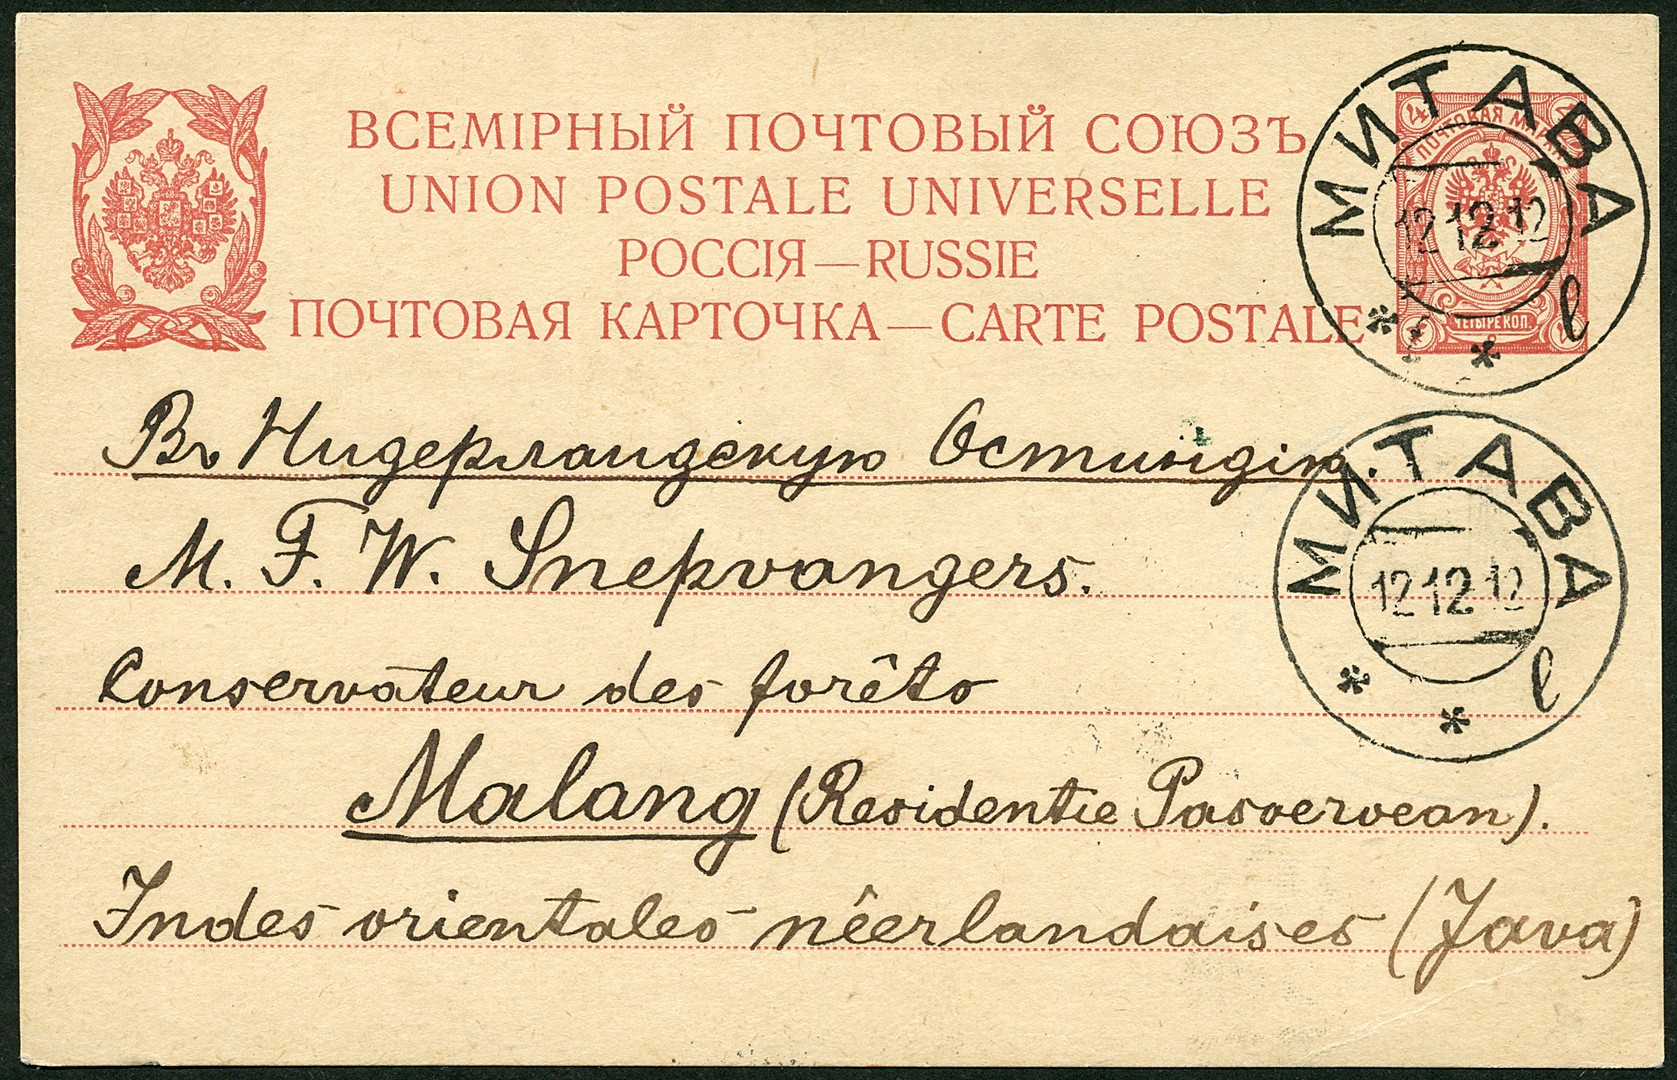 ВСЕМІРНЫЙ ПОЧТОВЫЙ СОЮЗЪ
UNION POSTALE UNIVERSELLE
РОССІЯ—RUSSIE
ПОЧТОВАЯ КАРТОЧКА—CARTE POSTALE
ПОЧТОВАЯ МАРКА
4
ЧЕТЫРЕ КОП.
МИТАВА
12 12 12
*
*
В
Въ Нидерландскую Остиндію.
M. F. W. Snepvangers.
МИТАВА
12 12 12
*
*
В
Conservateur des forêts
Malang (Residentie Pasoeroean).
Indes orientales néerlandaises (Java)